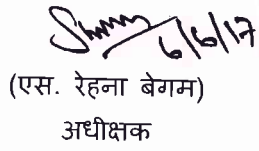 6/6/17
(एस. रेहना बेगम)
अधीक्षक